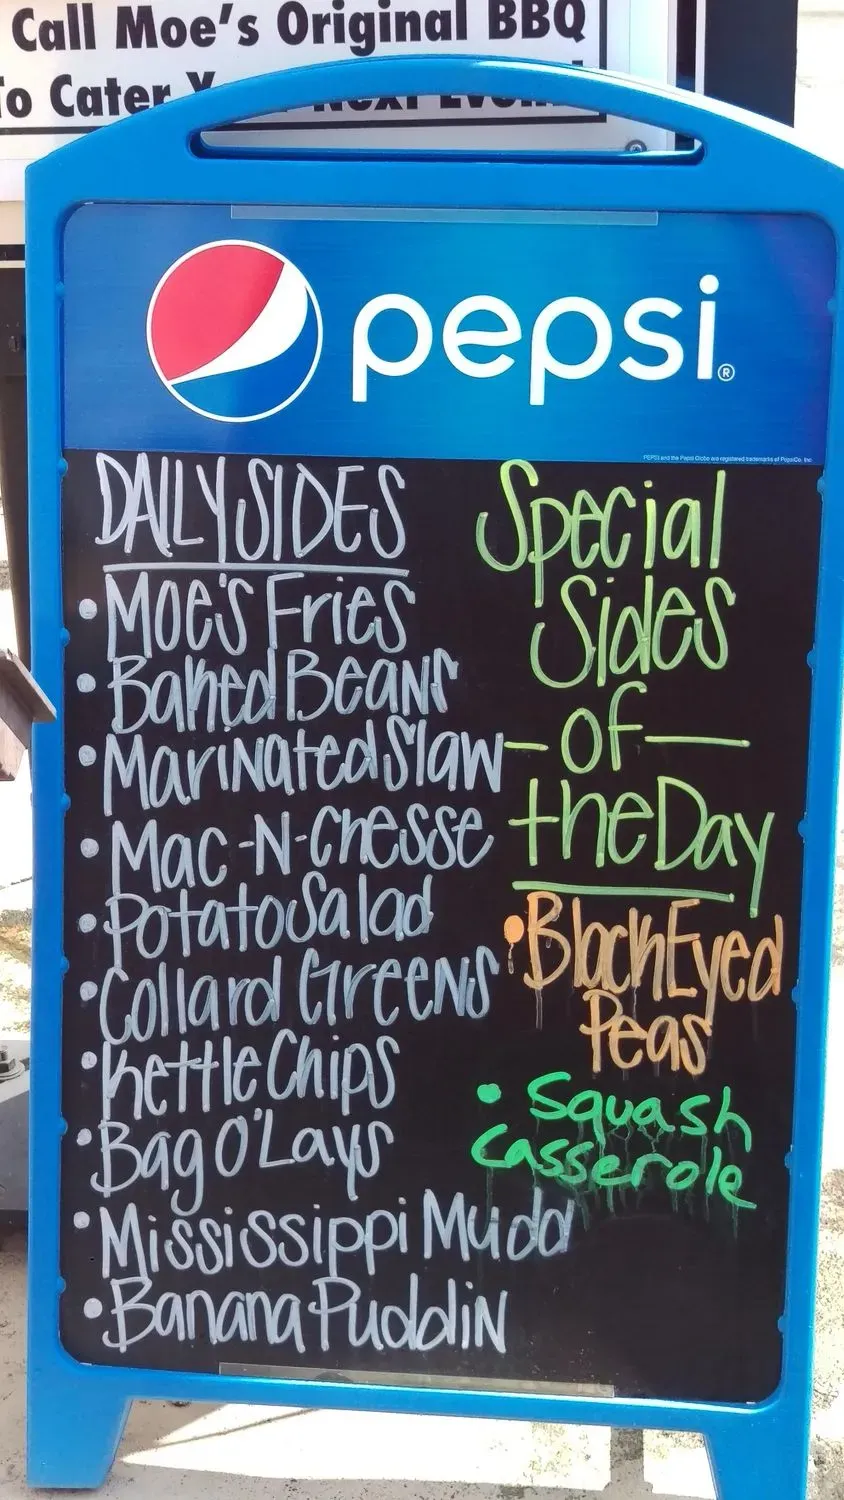 Call Moe's Original BBQ
To Cater
pepsi®
PEPSI and the Pepsi Globe are registered trademarks of PepsiCo, Inc.
DAILY SIDES
• MOE'S FRIES
• Baked Beans
• Marinated Slaw
• Mac-N-Chesse
• Potato Salad
• Collard Greens
• Kettle Chips
• Bag O' Lays
• Mississippi Mudd
• Banana Puddin
Special
Sides
- of -
the Day
• Black Eyed
Peas
• Squash
Casserole